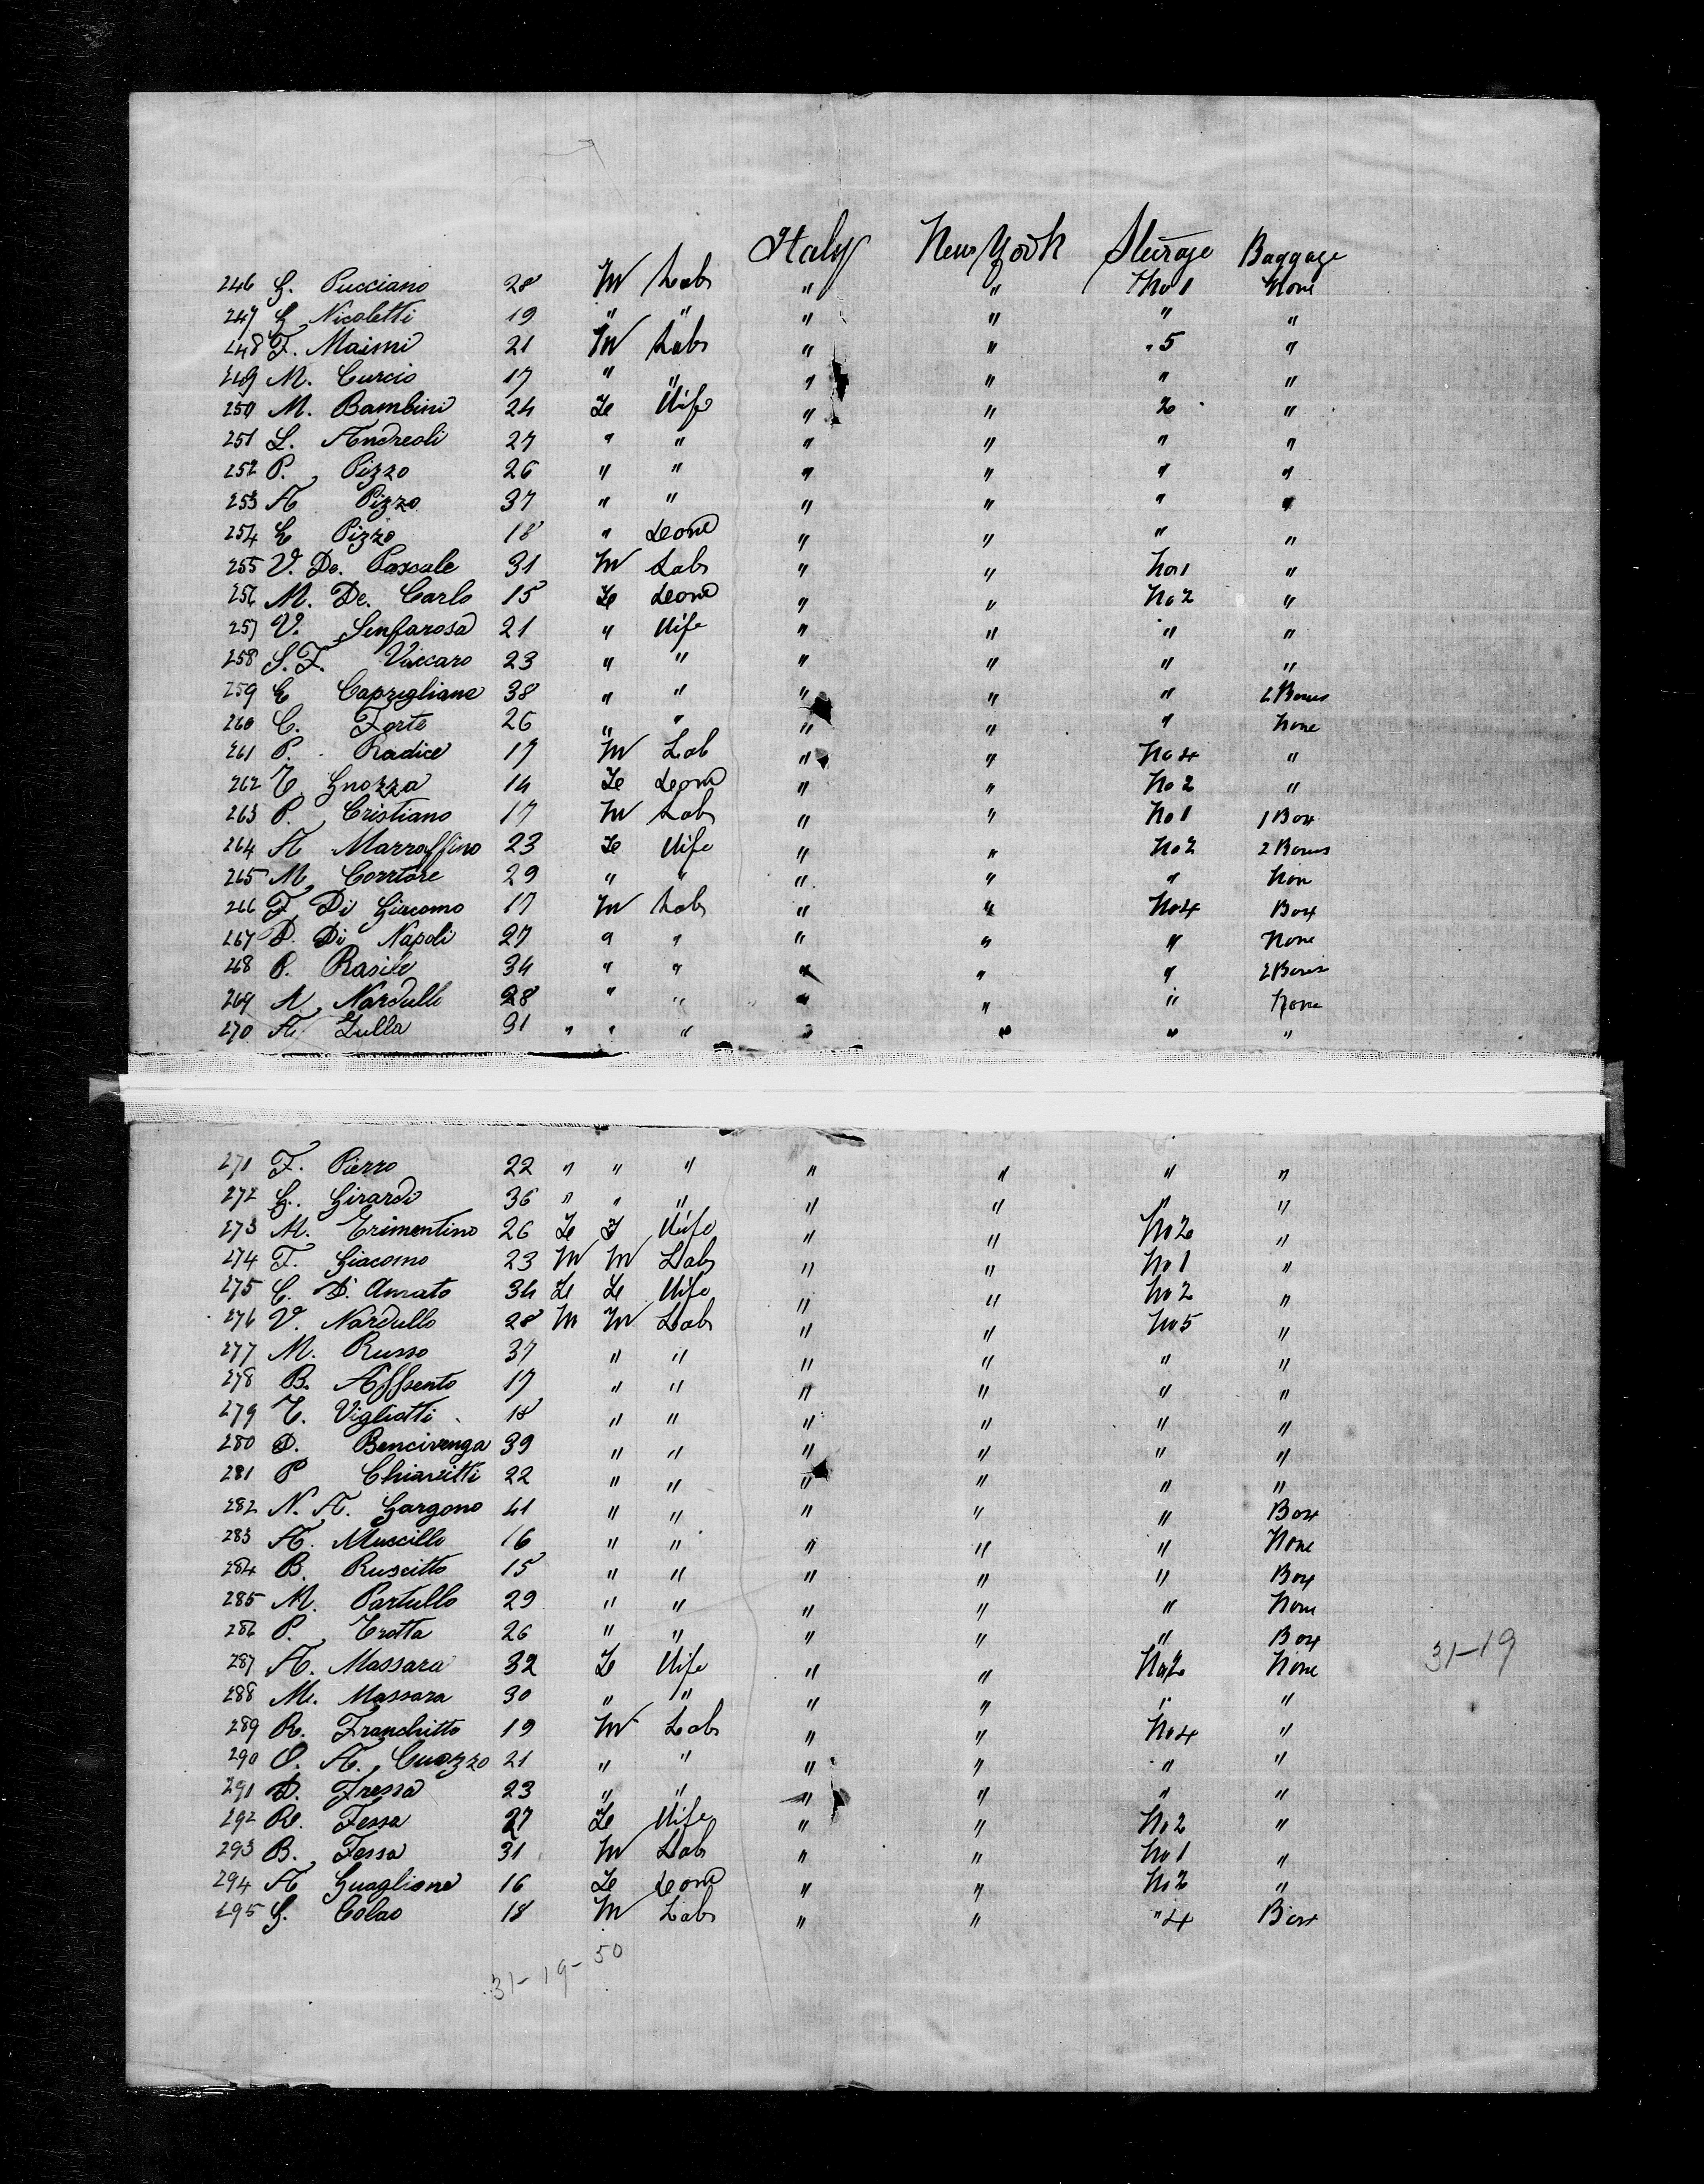 Italy New York Steerage Baggage
246 G. Pucciano 28 M Labr " " No 1 None
247 G. Nicoletti 19 " " " " " "
248 F. Maimi 21 M Labr " " " 5 "
249 M. Curcio 17 " " " " " "
250 M. Bambini 24 Fe Wife " " 2 "
251 L. Andreoli 27 " " " " " "
252 P. Pizzo 26 " " " " " "
253 A Pizzo 37 " " " " " "
254 G Pizzo 18 " " " " "
255 V. De. Pascale 31 M Labr " " No 1 "
256 M. De. Carlo 15 Fe " " No 2 "
257 V. Senfarosa 21 " Wife " " " "
258 S. F. Vaccaro 23 " " " " " "
259 G Caprigliane 38 " " " " " 2 Boxes
260 C. Forte 26 " " " " " None
261 P. Radice 17 M Lab " " No 4 "
262 T. Gnozza 14 Fe " " No 2 "
263 P. Cristiano 17 M Labr " " No 1 1 Box
264 A Marzaffino 23 Fe Wife " " No 2 2 Boxes
265 M. Corrtore 29 " " " " " Non
266 F. Di Giacomo 17 M Labr " " No 4 Box
267 D. Di Napoli 27 " " " " " None
268 P. Rasile 34 " " " " " 2 Boxes
269 A. Nardullo 28 " " " " " None
270 A. Zulla 31 " " " " " " "
271 F. Pierro 22 " " " " " " "
272 G. Girardi 36 " " " " " " "
273 M. Trimentino 26 Fe F Wife " " No 2 "
274 F. Giacomo 23 M M Labr " " No 1 "
275 C. D'Amato 34 Fe Fe Wife " " No 2 "
276 V. Nardullo 28 M M Labr " " No 5 "
277 M. Russo 37 " " " " " "
278 B. Affsento 17 " " " " " "
279 T. Vigliotti 18 " " " " " "
280 D. Bencivenga 39 " " " " " "
281 P Chiareitti 22 " " " " " "
282 N. A. Gargono 41 " " " " " Box
283 A. Muccillo 16 " " " " " None
284 B. Ruscitto 15 " " " " " Box
285 M. Partullo 29 " " " " " None
286 P. Trotta 26 " " " " " Box
287 A. Massara 32 Fe Wife " " No 2 None 31-19
288 M. Massara 30 " " " " " "
289 R. Franchitto 19 M Labr " " No 4 "
290 O. A. Cuozzo 21 " " " " " "
291 D. Fressa 23 " " " " " "
292 R. Fessa 27 Fe Wife " " No 2 "
293 B. Fessa 31 M Labr " " No 1 "
294 A Guaglione 16 Fe " " No 2 "
295 G. Colao 18 M Labr " " " 4 Box
31-19-50